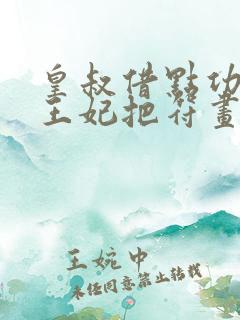 皇叔借點功
王妃把符畫
王婉中
未经同意禁止转载